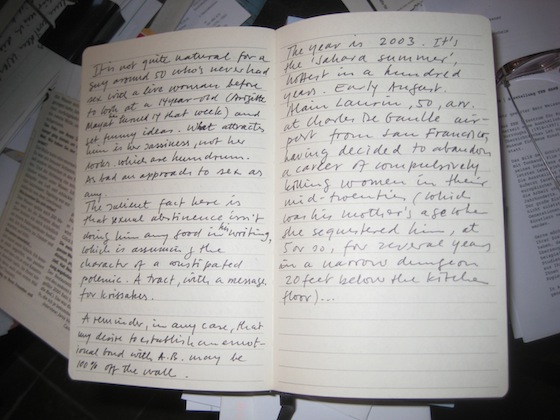 It is not quite natural for a
guy around 50 who's never had
sex with a live woman before
to look at a 14 year-old (
turned 14 that week) and
get funny ideas. What attracts
him is her sassiness, not her
looks, which are humdrum.
As bad an approach to sex as
any.
The salient fact here is
that sexual abstinence isn't
doing him any good in his writing,
which is assuming the
character of a constipated
polemic. A tract, with a message,
for krissakes.
A reminder, in any case, that
my desire to establish an emot-
ional bond with A.B. may be
100% off the wall.
The year is 2003. It's
the 'Sahara summer',
hottest in a hundred
years. Early August.
Alain Laurin, 50, arr.
at Charles De Gaulle air-
port from San Francisco,
having decided to abandon
a career of compulsively
killing women in their
mid-twenties (which
was his mother's age when
she sequestered him, at
5 or so, for several years
in a narrow dungeon
20 feet below the kitchen
floor)...